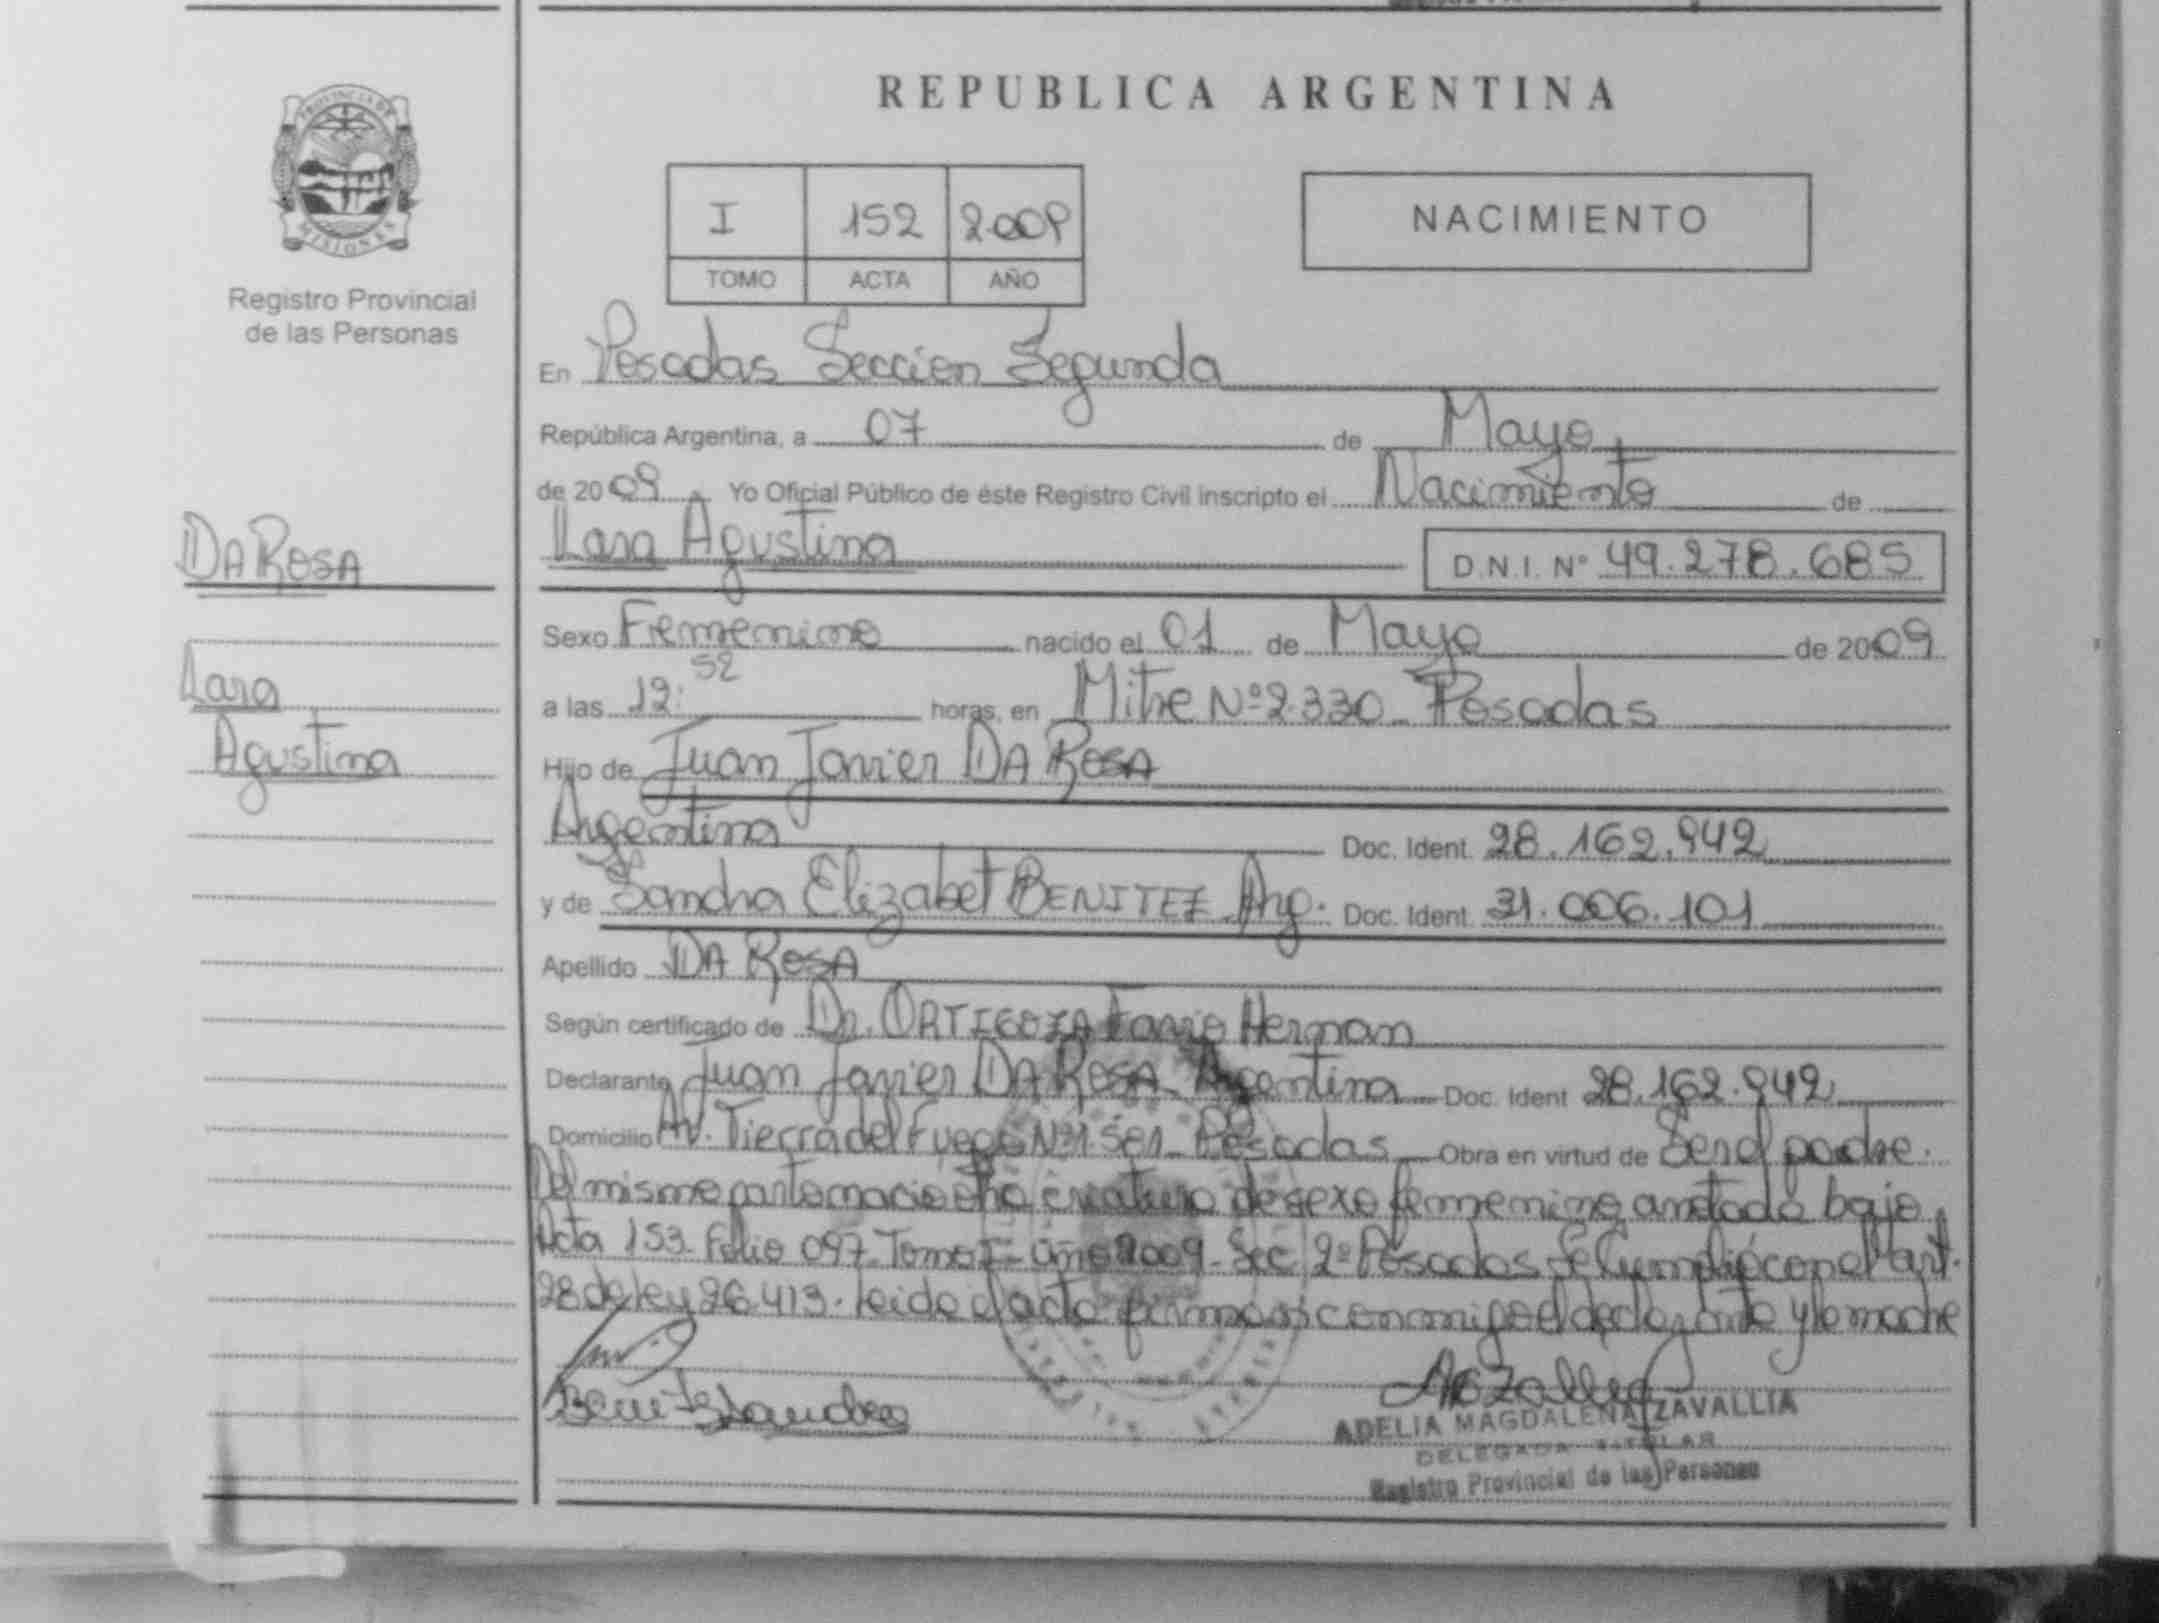 REPUBLICA ARGENTINA
PROVINCIA DE
MISIONES
Registro Provincial
de las Personas
I 152 2009
TOMO ACTA AÑO
NACIMIENTO
En Posadas Sección Segunda
República Argentina, a 07 de Mayo
de 2009 Yo Oficial Público de éste Registro Civil inscripto el Nacimiento de
DA ROSA
Lara Agustina D.N.I. Nº 49.278.685
Sexo Femenino nacido el 01 de Mayo de 2009
Lara
a las 12:52 horas, en Mitre Nº 2.330 Posadas
Agustina
Hijo de Juan Javier DA ROSA
Argentina Doc. Ident. 28.162.942
y de Sandra Elizabet BENITEZ Arg. Doc. Ident. 31.006.101
Apellido DA ROSA
Según certificado de Dr. ORTIGOZA Hernan
Declarante Juan Javier DA ROSA Argentina Doc. Ident 28.162.942
Domicilio Av. Tierra del Fuego Nº 1.581 Posadas Obra en virtud de Ser el padre.
Del mismo parto nacio otra criatura de sexo femenino anotada bajo
Acta 153 Folio 097 Tomo I año 2009 Sec 2º Posadas Se Cumplió con el art.
28 de ley 26.413. leido el acto firman conmigo el declarante y la madre
ADELIA MAGDALENA ZAVALLIA
DELEGADA TITULAR
Registro Provincial de las Personas